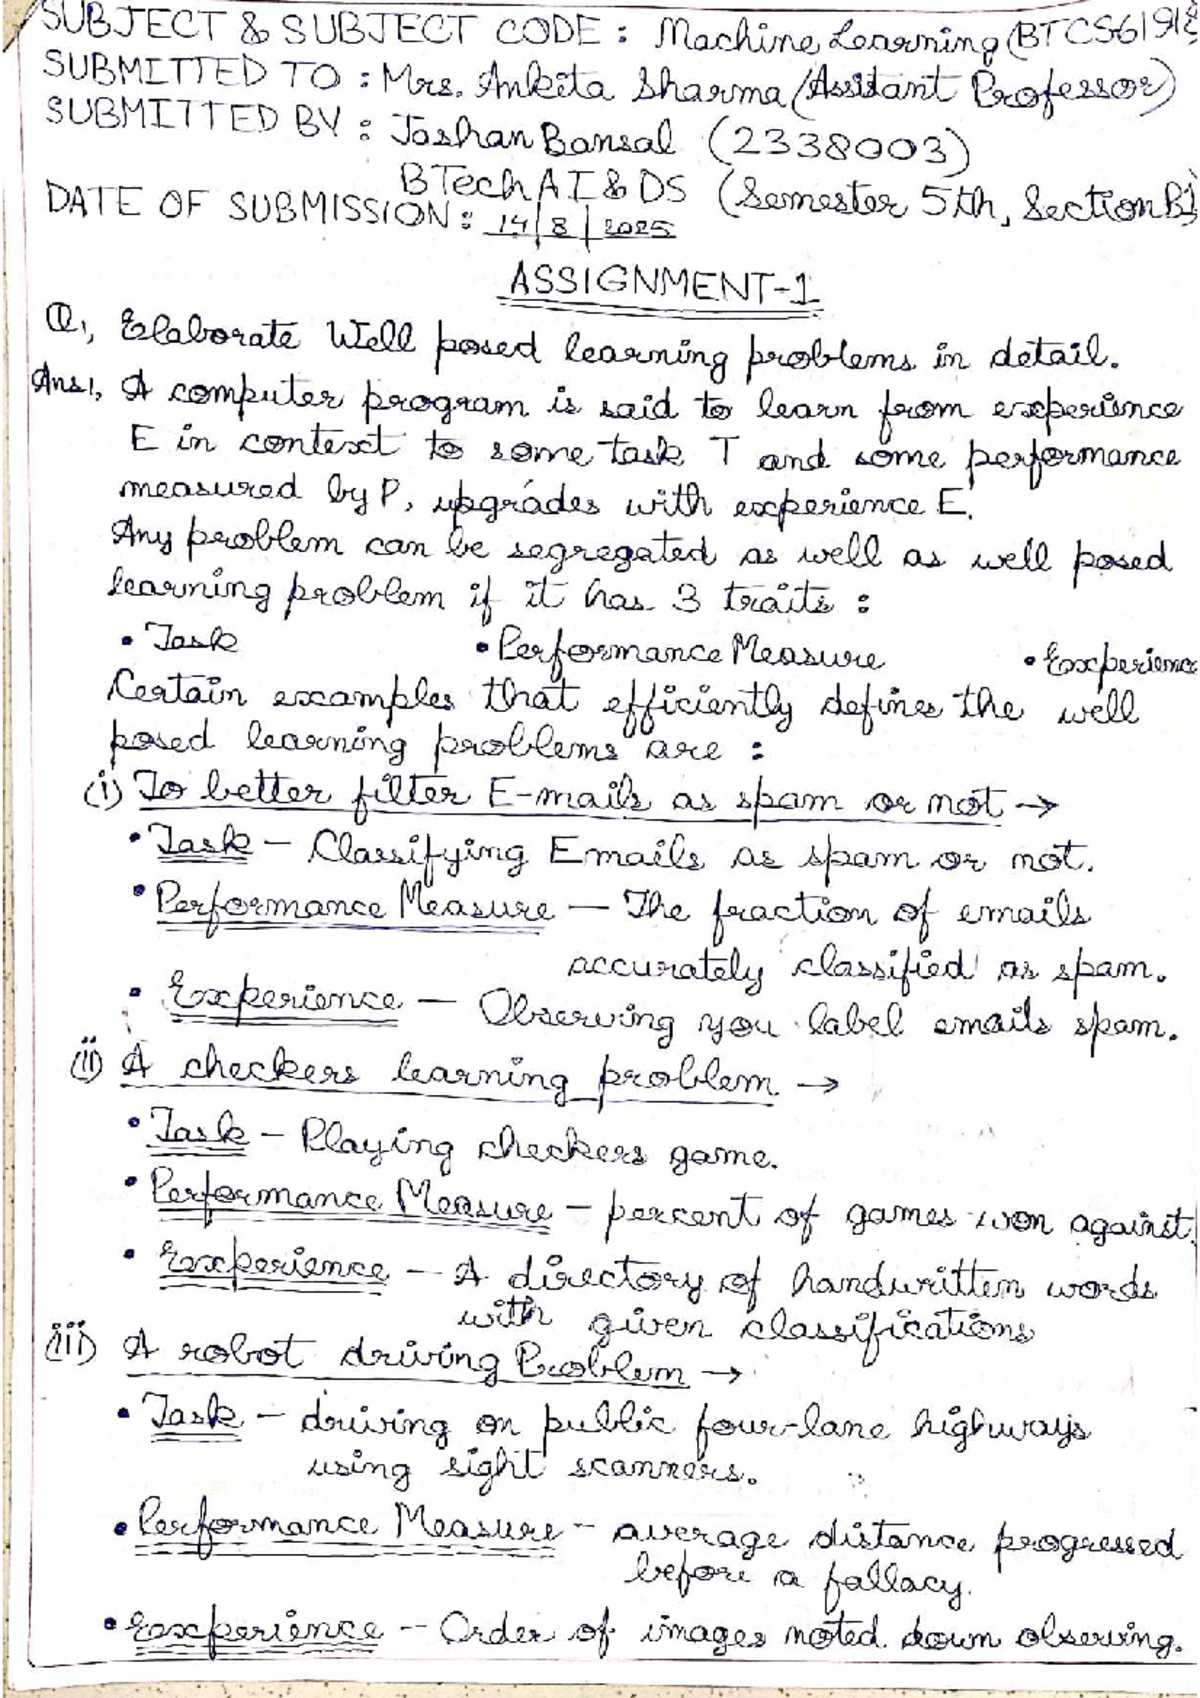 SUBJECT & SUBJECT CODE : Machine Learning (BTCS619
SUBMITTED TO : Mrs. Ankita Sharma (Assitant Professor)
SUBMITTED BY : Jashan Bansal (2338003)
BTech AI&DS (Semester 5th, Section B1)
DATE OF SUBMISSION : 14/8/2025
ASSIGNMENT-1
Q1, Elaborate Well posed learning problems in detail.
Ans1, A computer program is said to learn from experience
E in context to some task T and some performance
measured by P, upgrades with experience E.
Any problem can be segregated as well as well posed
learning problem if it has 3 traits :
• Task • Performance Measure • Experience
Certain examples that efficiently defines the well
posed learning problems are :
(i) To better filter E-mails as spam or not →
• Task – Classifying Emails as spam or not.
• Performance Measure – The fraction of emails
accurately classified as spam.
• Experience – Observing you label emails spam.
(ii) A checkers learning problem →
• Task – Playing checkers game.
• Performance Measure – percent of games won against.
• Experience – A directory of handwritten words
with given classifications
(iii) A robot driving Problem →
• Task – driving on public four-lane highways
using sight scanners.
• Performance Measure – average distance progressed
before a fallacy.
• Experience – Order of images noted down observing.